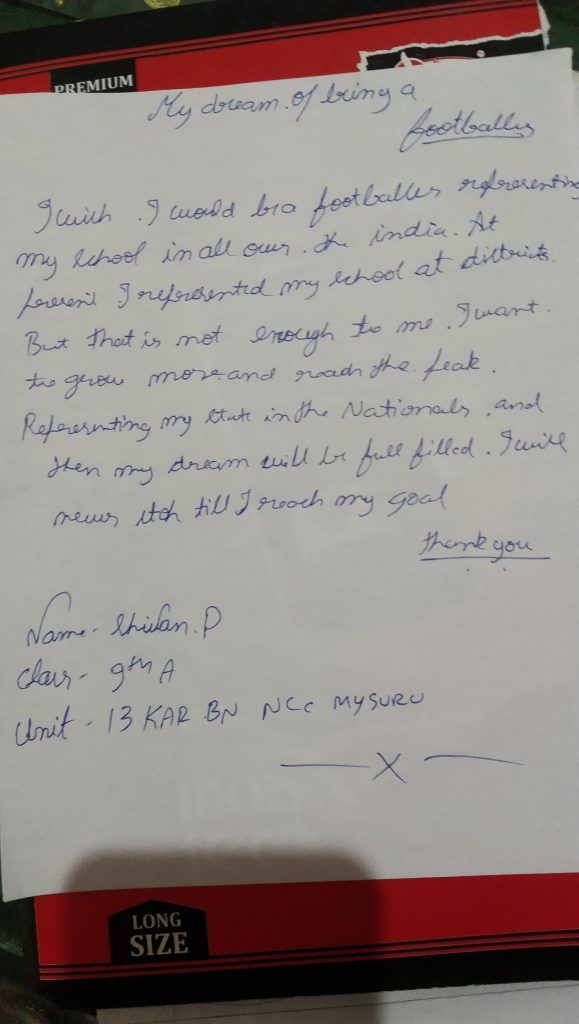 PREMIUM
My dream of being a
footballer
I wish . I would be a footballer representing
my school in all over . the india. At
present I represented my school at districts.
But that is not enough to me . I want .
to grow more and reach the peak .
Representing my state in the Nationals , and
then my dream will be full filled . I will
never stop till I reach my goal
thank you
Name - P
Class - 9th A
Unit - 13 KAR BN NCC MYSURU
X
LONG
SIZE